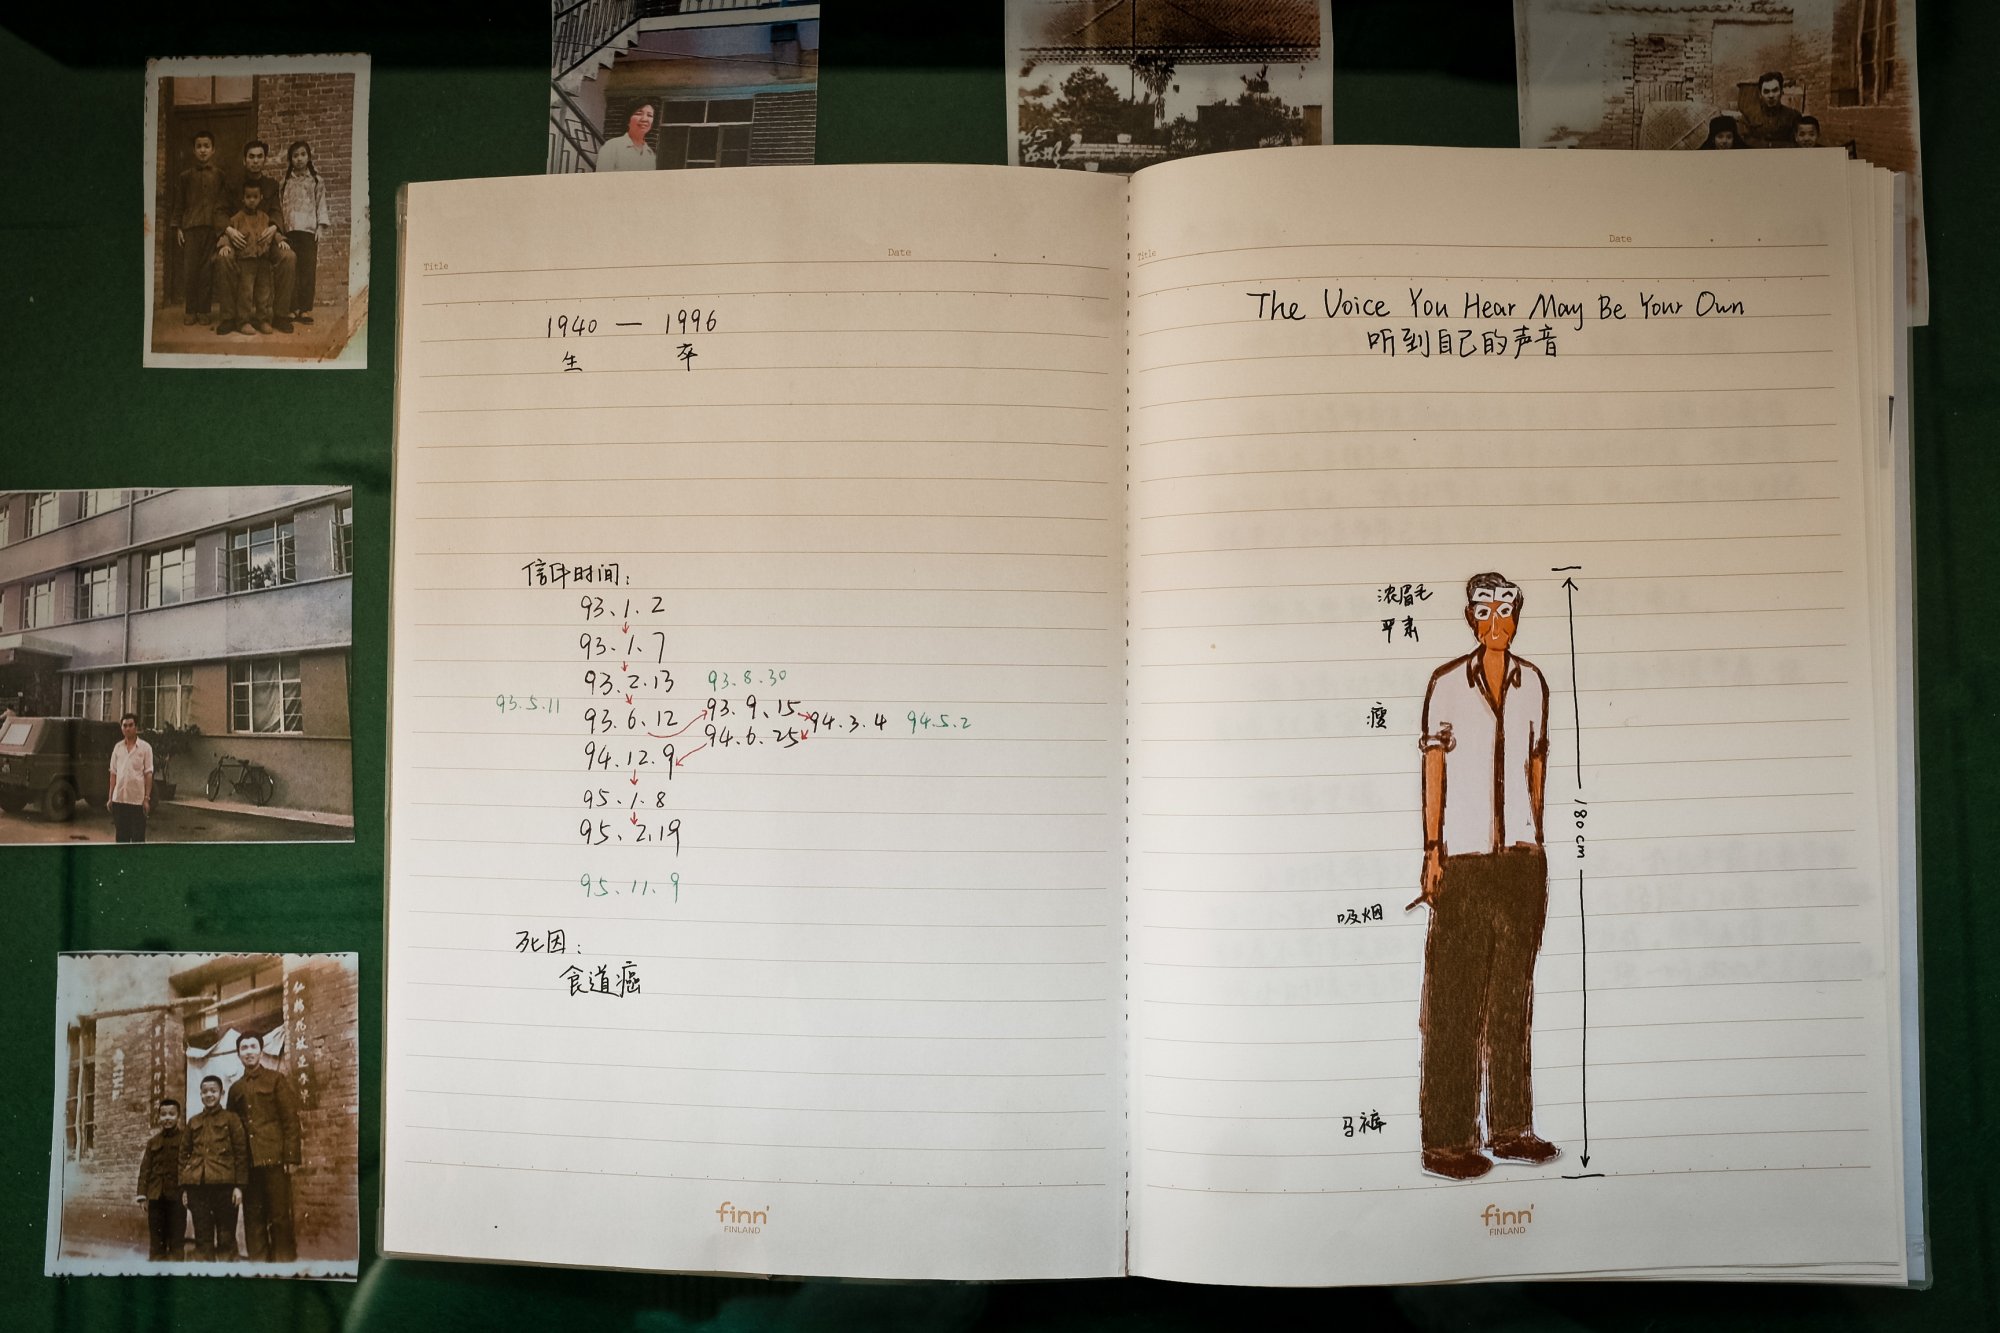 Title
Date
1940 — 1996
生 卒
信耳时间：
93.1.2
93.1.7
93.2.13 93.8.30
93.5.11
93.6.12 93.9.15 94.3.4 94.5.2
94.6.25
94.12.9
95.1.8
95.2.19
95.11.9
死因：
食道癌
finn'
FINLAND
Title
Date
The Voice You Hear May Be Your Own
听到自己的声音
浓眉毛
平素
瘦
180cm
吸烟
马裤
finn'
FINLAND